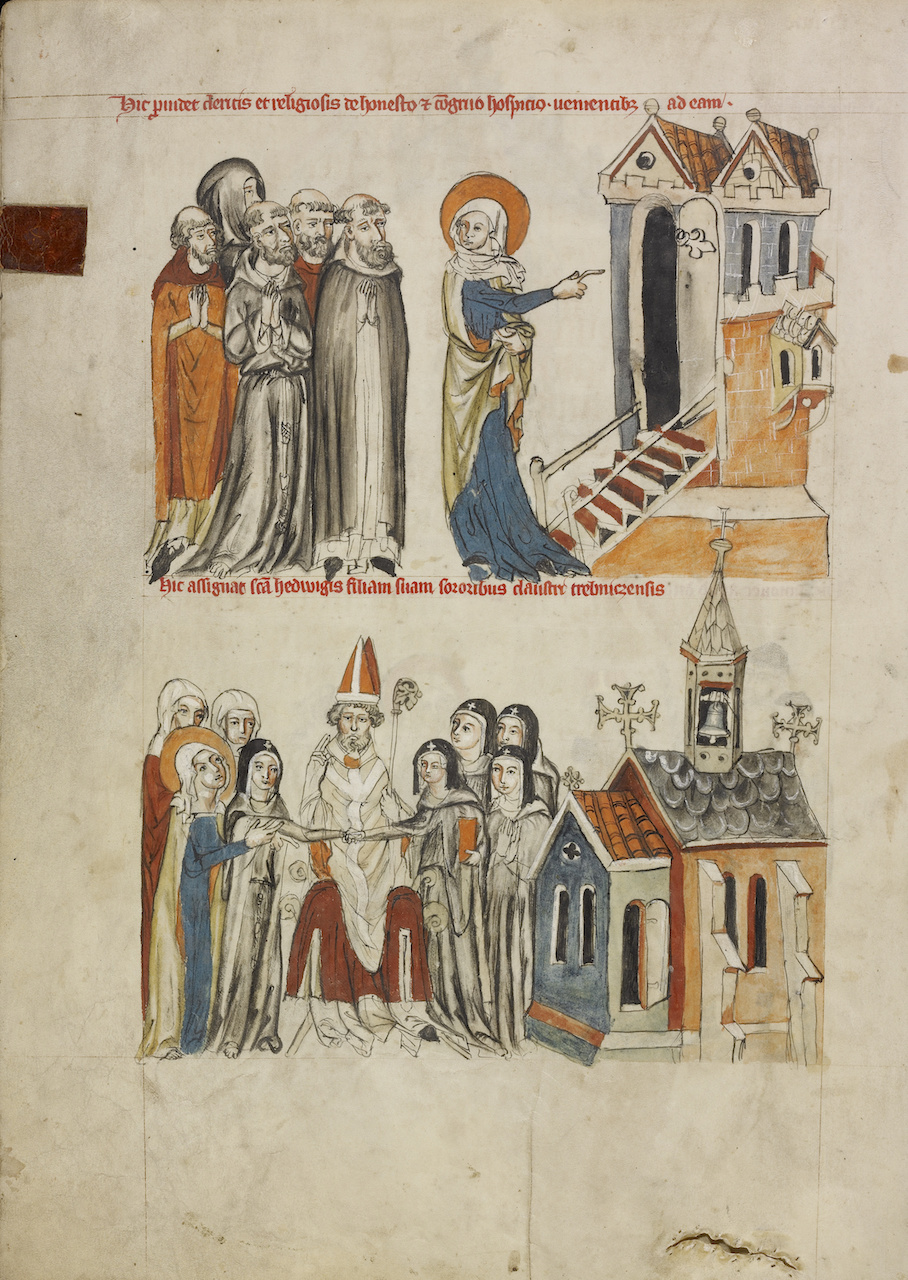 Hic p̱uidet clericis et religiosis de honesto ⁊ ɔ̄gruo hospicio · uenientibꝫ ad eam ·
Hic assignat sc̄a hedwigis filiam suam sororibus claustri trebniczensis